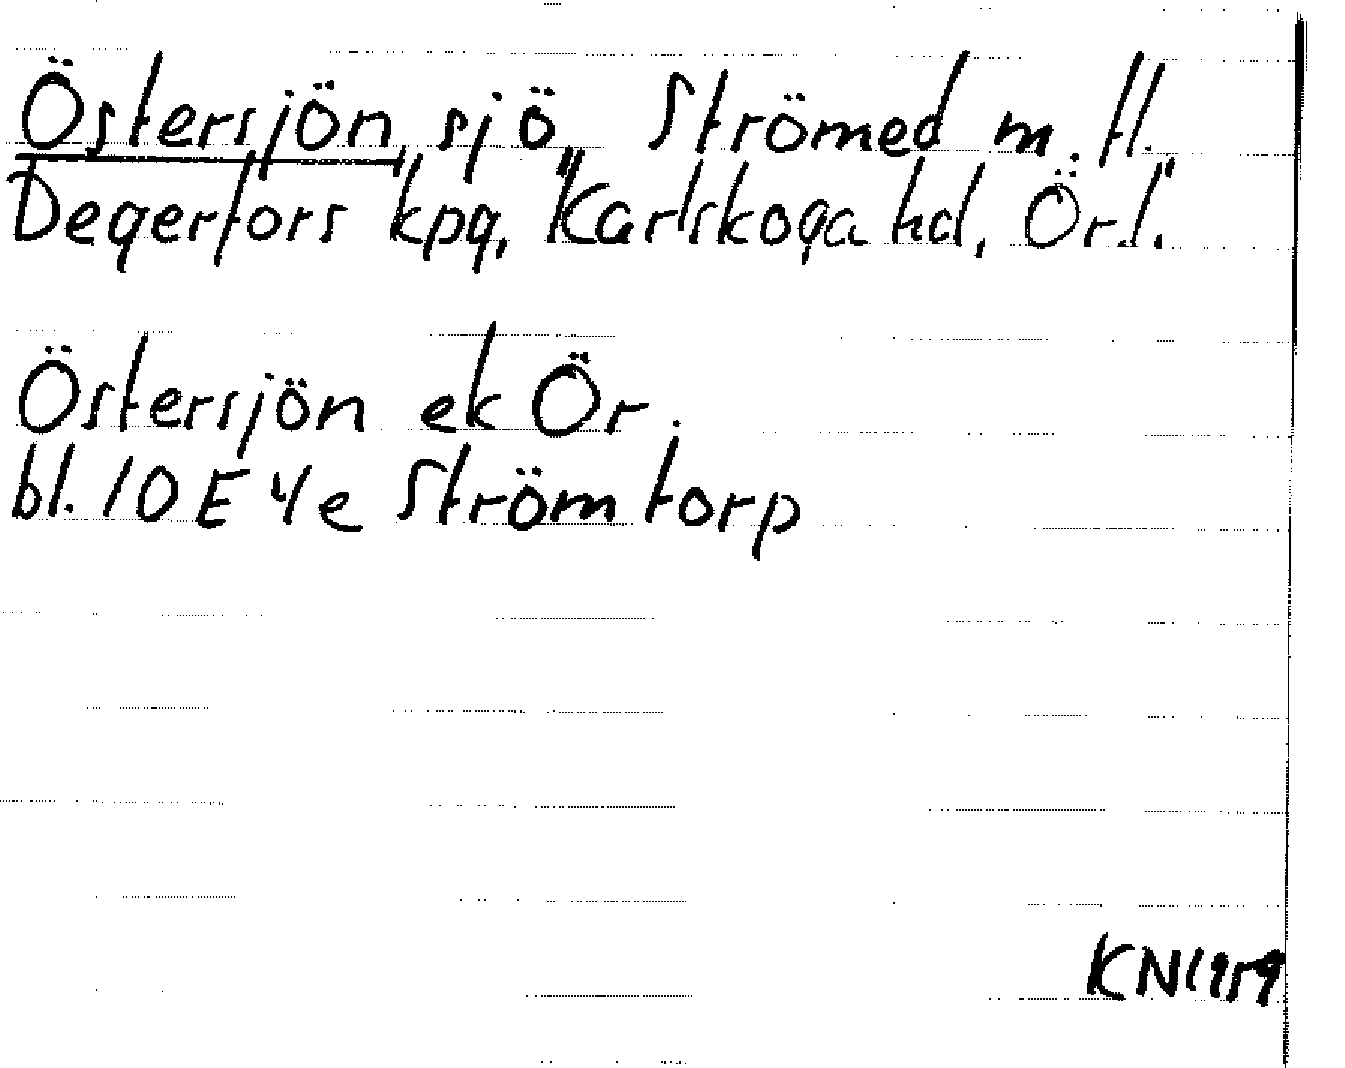 Östersjön, sjö, Strömed m. fl.,
Degerfors kpg, Karlskoga hd, Ör.l.
Östersjön ek Ör.
bl. 10 E 4e Strömtorp
KN 1959